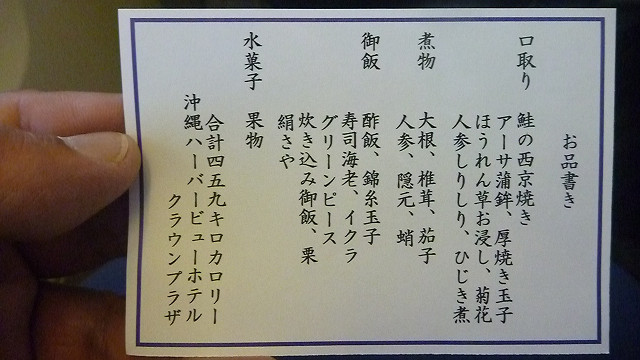 お品書き
口取り
鮭の西京焼き
アーサ蒲鉾、厚焼き玉子
ほうれん草お浸し、菊花
人参しりしり、ひじき煮
煮物
大根、椎茸、茄子
人参、隠元、蛸
御飯
酢飯、錦糸玉子
寿司海老、イクラ
グリーンピース
炊き込み御飯、栗
絹さや
水菓子
果物
合計四五九キロカロリー
沖縄ハーバービューホテル
クラウンプラザ